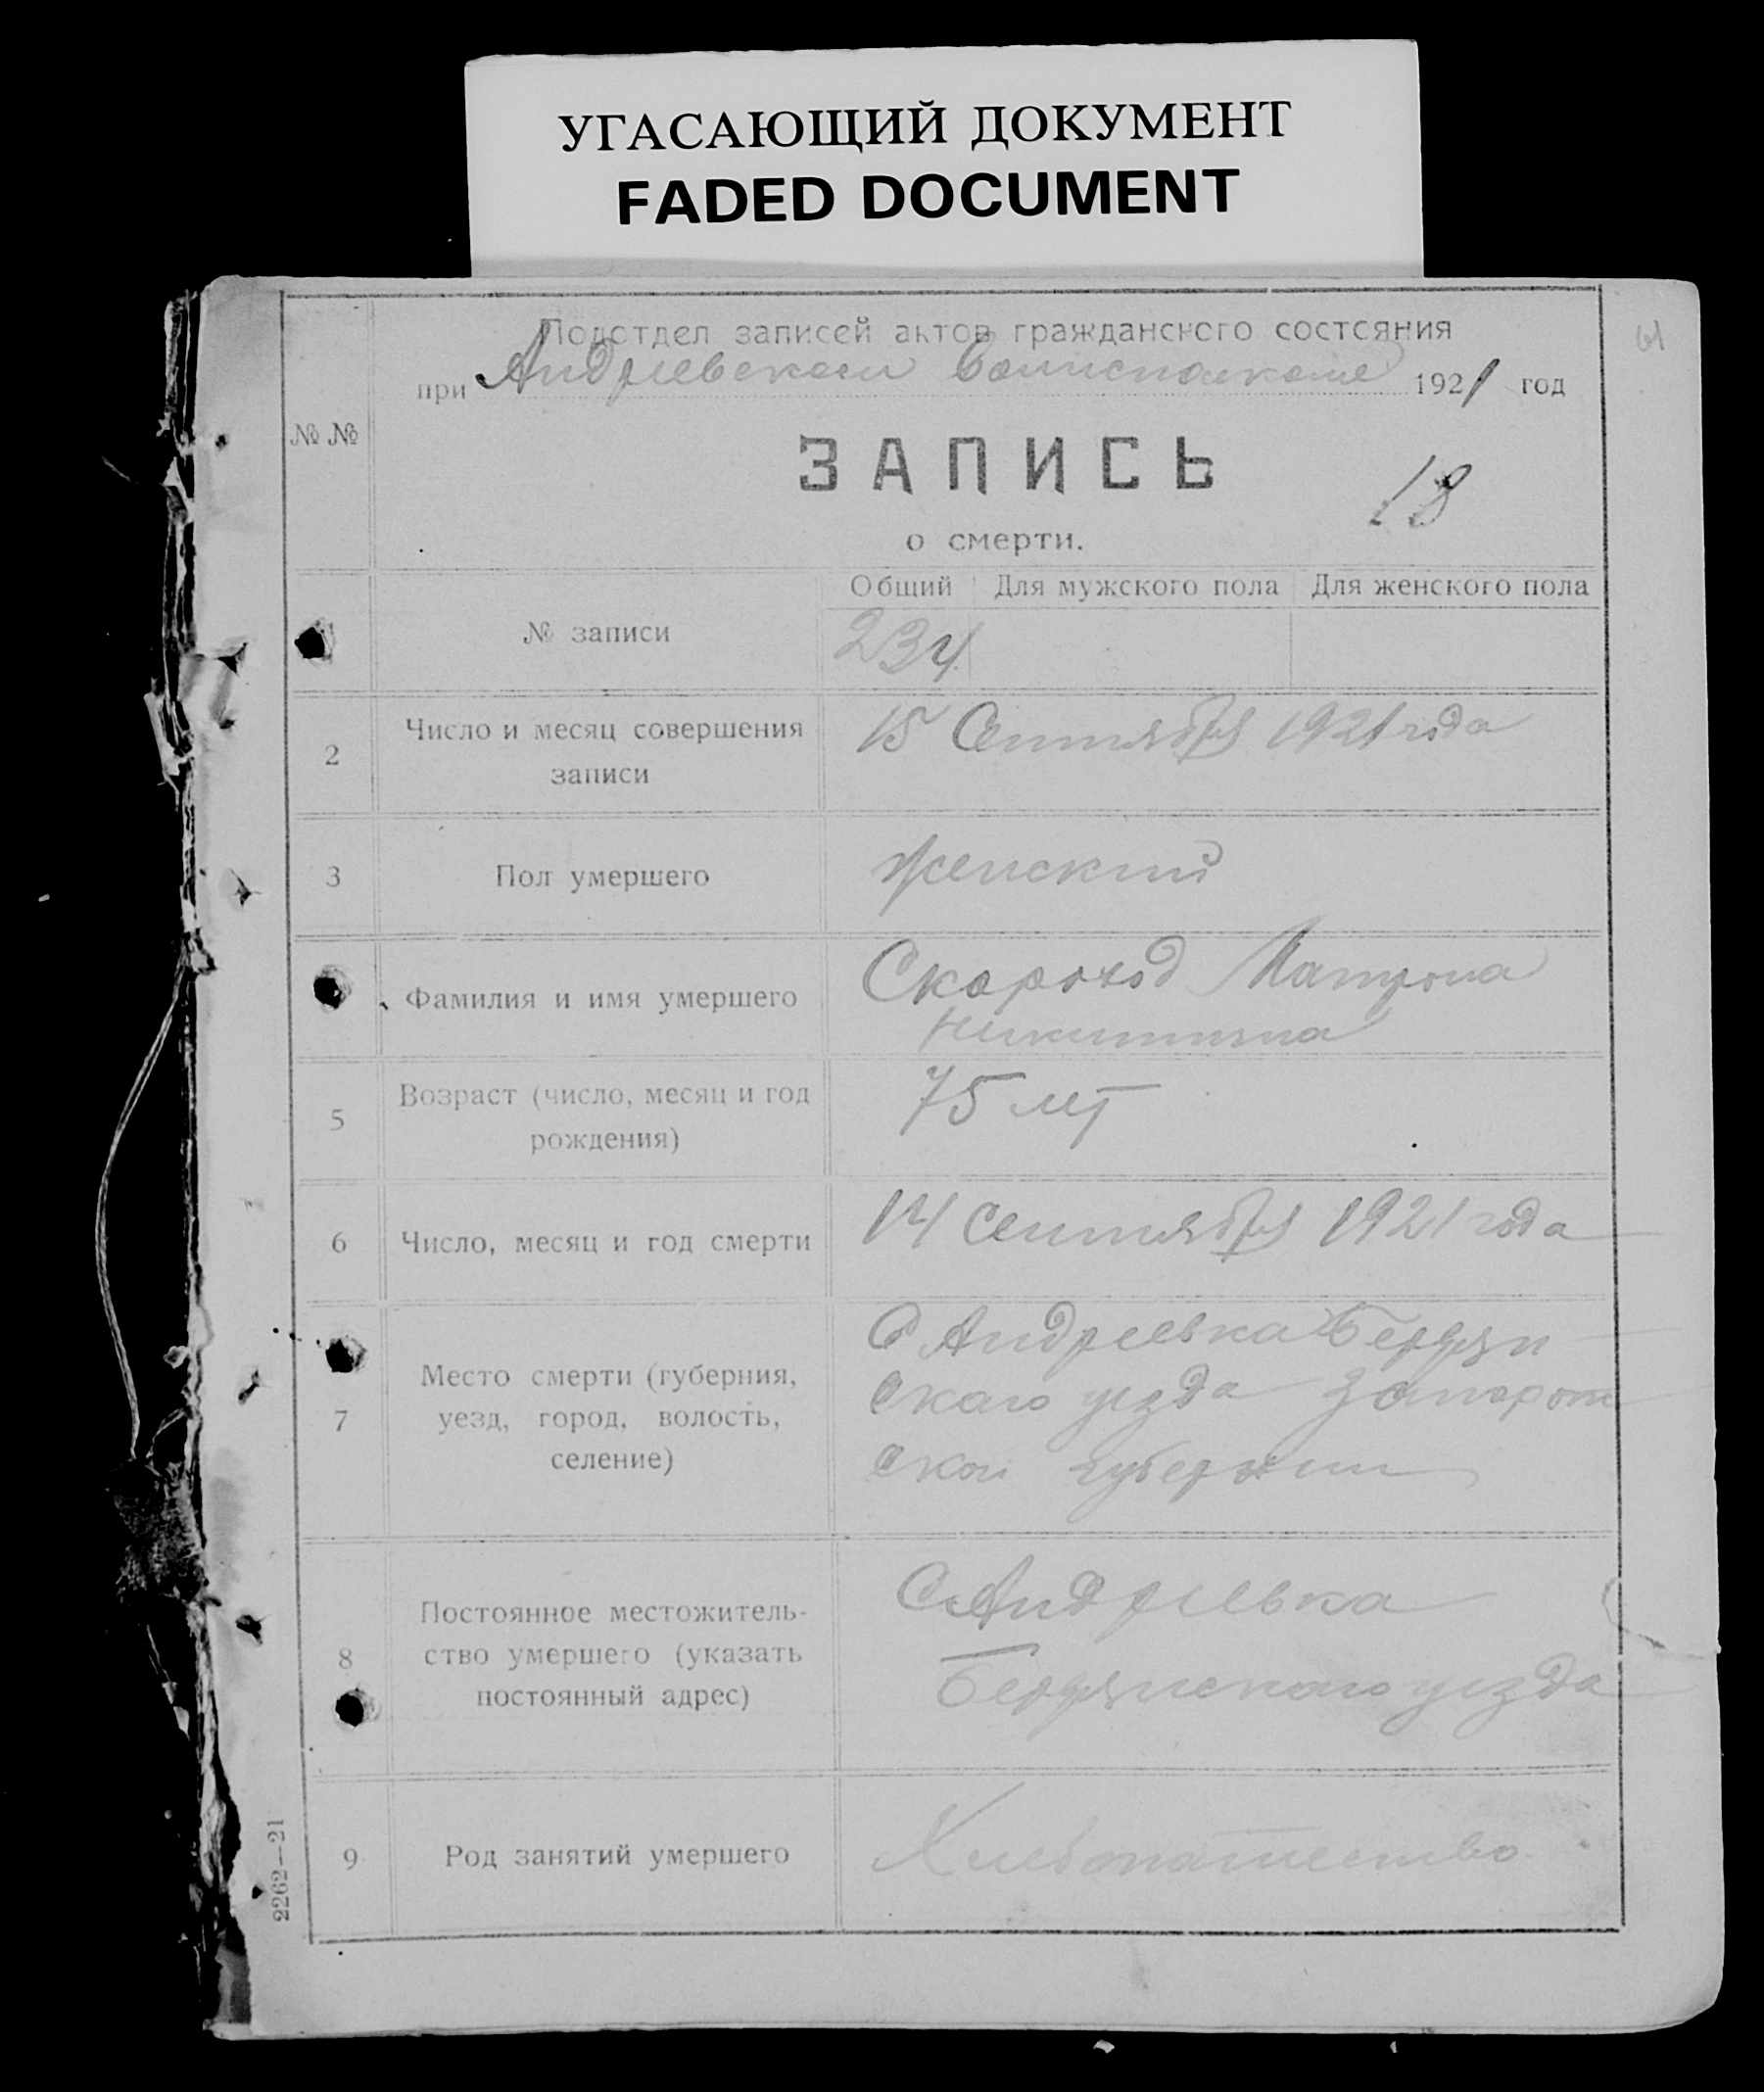 УГАСАЮЩИЙ ДОКУМЕНТ
FADED DOCUMENT
61
Подотдел записей актов гражданского состояния
при Андреевском Волисполкоме 1921 год
№ №
ЗАПИСЬ
18
о смерти.
Общий Для мужского пола Для женского пола
№ записи 234
2 Число и месяц совершения записи 15 Сентября 1921 года
3 Пол умершего Женский
Фамилия и имя умершего Скороход Матрона
Никитична
5 Возраст (число, месяц и год рождения) 75 лет
6 Число, месяц и год смерти 14 Сентября 1921 года
7 Место смерти (губерния, уезд, город, волость, селение)
С Андреевка Бердян
скаго уезда Запорож
ской губернии
8 Постоянное местожитель-
ство умершего (указать
постоянный адрес)
С Андреевка
Бердянскаго уезда
9 Род занятий умершего Хлебопашество
2262—21